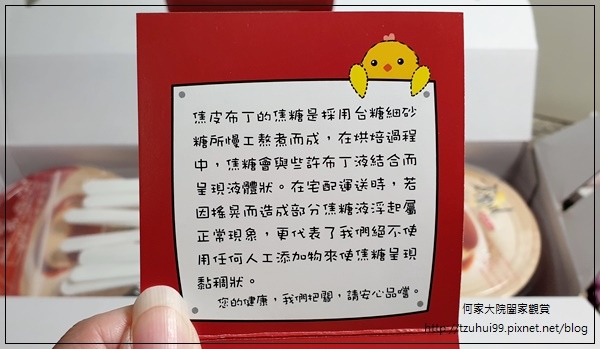 焦皮布丁的焦糖是採用台糖細砂
糖所慢工熬煮而成，在烘焙過程
中，焦糖會與些許布丁液結合而
呈現液體狀。在宅配運送時，若
因搖晃而造成部分焦糖液浮起屬
正常現象，更代表了我們絕不使
用任何人工添加物來使焦糖呈現
黏稠狀。
您的健康，我們把關，請安心品嚐。
何家大院闔家觀賞
http://tzuhui99.pixnet.net/blog